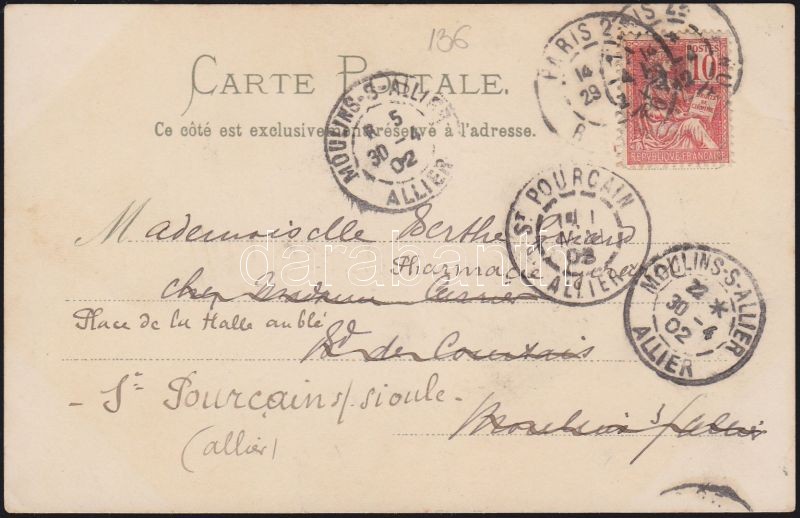 136
CARTE POSTALE.
Ce côté est exclusivement réservé à l'adresse.
PARIS
14
29
POSTES
10
REPUBLIQUE FRANÇAISE
MOULINS-S-ALLIER
5
30 -4
02
ALLIER
ST POURCAIN
1
02
ALLIER
MOULINS-S-ALLIER
22 *
30 -4
02
ALLIER
Mademoiselle Berthe
Pharmacie
chez Madame
Place de la Halle au blé
Bd de Courtais
- St Pourçain s/ sioule -
(allier)
Moulins s/ allier
darabanth.com